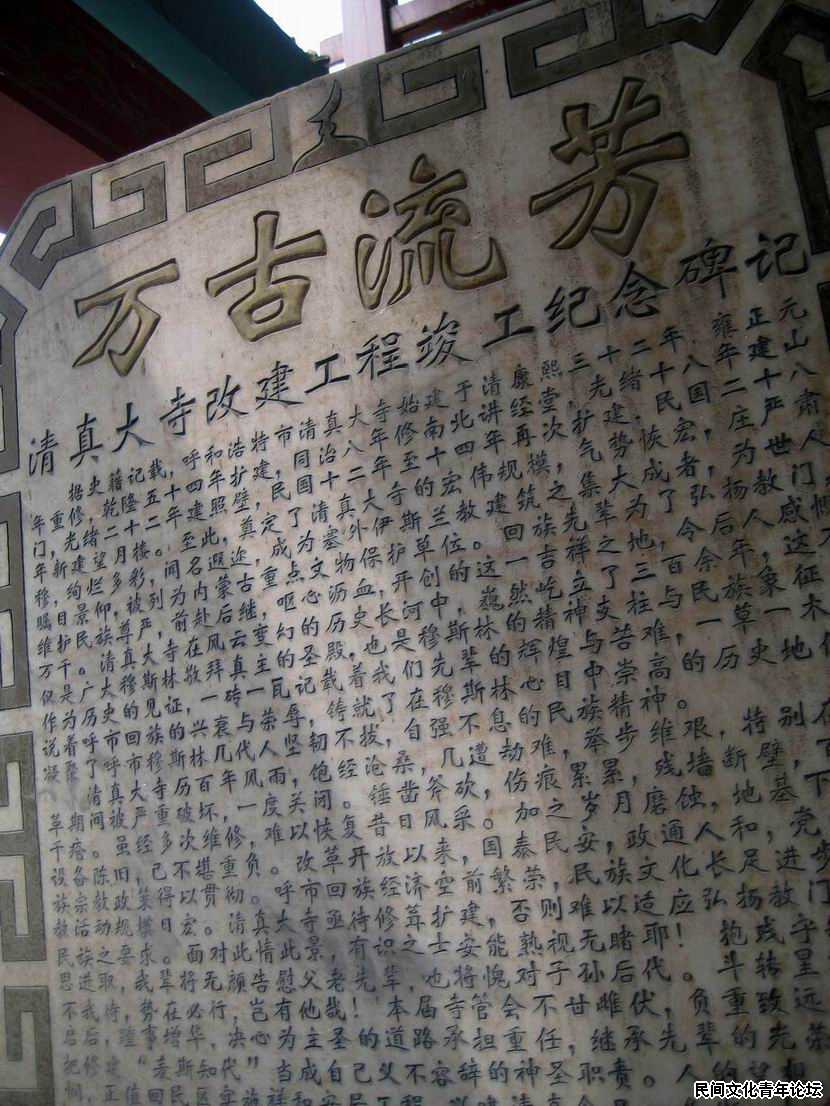 万古流芳
清真大寺改建工程竣工纪念碑记
据史籍记载，呼和浩特市清真大寺始建于清康熙三十二年，雍正元
年重修，乾隆五十四年扩建，同治八年修南北讲堂，光绪十年建山
门，光绪二十二年建照壁，民国十二年至十四年再次扩建，民国二十八
年新建望月楼。至此，奠定了清真大寺的宏伟规模，气势恢宏，庄严肃
穆，绚烂多彩，闻名遐迩，成为塞外伊斯兰教建筑之集大成者，为世人
瞩目景仰，被列为内蒙古重点文物保护单位。回族先辈为了弘扬教门
维护民族尊严，前赴后继，呕心沥血，开创的这一吉祥之地，令后人感慨
万千。清真大寺在风云变幻的历史长河中，巍然屹立了三百余年，这
仅是广大穆斯林敬拜真主的圣殿，也是穆斯林的精神支柱与民族象征
作为历史的见证，一砖一瓦记载着我们先辈的辉煌与苦难，一草一木
说着呼市回族的兴衰与荣辱，铸就了在穆斯林心目中崇高的历史地位
凝聚了呼市穆斯林几代人坚韧不拔，自强不息的民族精神。
清真大寺历百年风雨，饱经沧桑，几遭劫难，举步维艰，特别在
革期间被严重破坏，一度关闭。锤凿斧砍，伤痕累累，残墙断壁，
千疮。虽经多次维修，难以恢复昔日风采。加之岁月磨蚀，地基下
设备陈旧，已不堪重负。改革开放以来，国泰民安，政通人和，党
族宗教政策得以贯彻。呼市回族经济空前繁荣，民族文化长足进步
教活动规模日宏。清真大寺亟待修葺扩建，否则难以适应弘扬教门
民族之要求。面对此情此景，有识之士安能熟视无睹耶！抱残守
思进取，我辈将无颜告慰父老先辈，也将愧对子孙后代。斗转星
不我待，势在必行，岂有他哉！本届寺管会不甘雌伏，负重致远
启后，踵事增华，决心为主圣的道路承担重任，继承先辈的先荣
把修建“麦斯知代”当成自己义不容辞的神圣职责。人的
正值回民区实施祥和安居工程
民间文化青年论坛